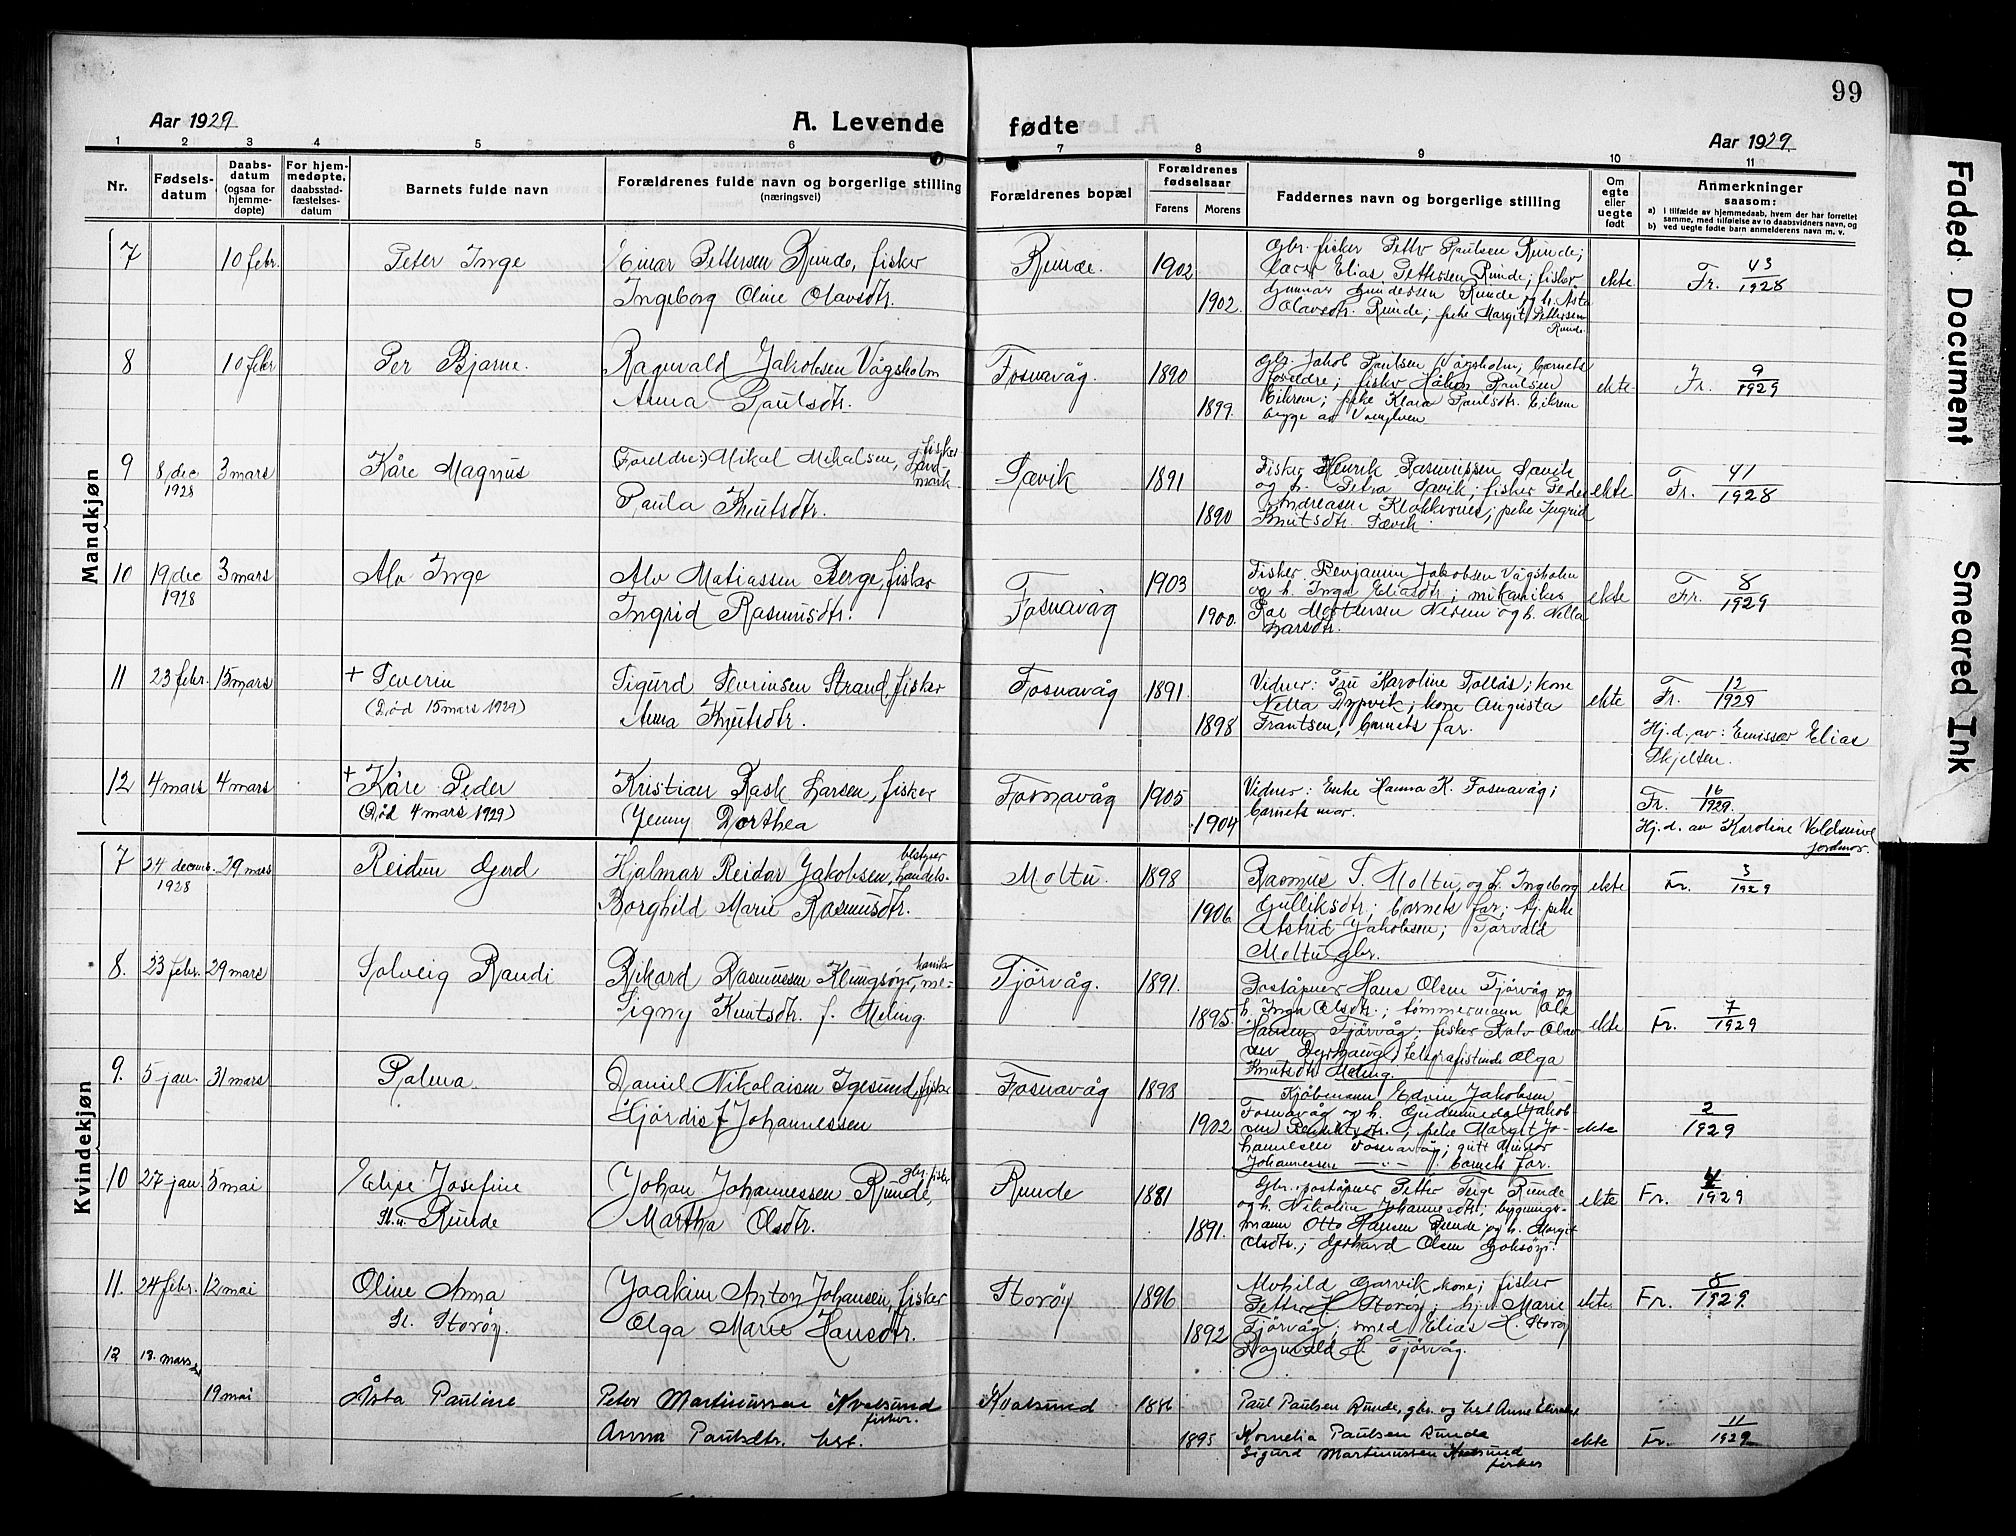 99
Aar 1929
A. Levende
fødte
Aar 1929.
1 2 3 4 5 6 7 8 9 10 11
Nr.
Fødsels-
datum
Daabs-
datum
(ogsaa for
hjemme-
døpte)
For hjem-
medøpte,
daabsstad-
fæstelses-
datum
Barnets fulde navn
Forældrenes fulde navn og borgerlige stilling
(næringsvei)
Forældrenes bopæl
Forældrenes
fødselsaar
Farens Morens
Faddernes navn og borgerlige stilling
Om
egte
eller
uegte
født
Anmerkninger
saasom:
a) i tilfælde av hjemmedaab, hvem der har forrettet
samme, med tilføielse av to daabsvidners navn, og
b) ved uegte fødte barn anmelderens navn m. v.
Mandkjøn
7 10 febr. Peter Inge
Einar Pettersen Runde, fisker
Ingeborg Oline Olavsdtr.
Runde. 1902 1902.
Gbr. fisker Petter Paulsen Runde;
Elias Pettersen Runde; fisker
Gunnar Gundersen Runde og h. Asta
Olavsdtr. Runde; pike Margit Pettersen
Runde.
ekte
Fr. 43/1928
8 10 febr Per Bjarne.
Ragnvald Jakobsen Vågsholm
Anna Paulsdtr.
Fosnavåg. 1890 1899.
Gbr. Jakob Paulsen Vågsholm, barnets
foreldre; fisker Håkon Paulsen
Eikrem; pike Klara Paulsdtr. Eikrem
begge av Vanylven
ekte
Fr. 9/1929
9 8 dec 1928 3 mars Kåre Magnus
(Foreldre:) Mikal Mikalsen, fisker
Paula Knutsdtr.
Sævik 1891 1890
Fisker Henrik Rasmussen Sævik
og h. Petra Sævik; fisker Peder
Andreasen Klokkernes; pike Ingrid
Knutsdtr. Sævik.
ekte
Fr. 41/1928
10 19 dec 1928 3 mars Alv Inge
Alv Matiassen Berge, fisker
Ingrid Rasmusdtr.
Fosnavåg 1903 1900.
Fisker Benjamin Jakobsen Vågsholm
og h. Inga Eliasdtr; mikaniker
og h. Nella
Larsdtr.
ekte
Fr. 8/1929
11 23 febr. 15 mars + Severin
(Død 15 mars 1929)
Sigurd Severinsen Strand, fisker
Anna Knutsdtr.
Fosnavåg 1891. 1898
Vidner: Fru Karoline Tollås; kone
Netta Dypvik; kone Augusta
Frantsen; barnets far.
ekte
Fr. 12/1929
Hj.d. av: Emissær Elias
Skjelten.
12 4 mars 4 mars + Kåre Peder
(Død 4 mars 1929)
Kristian Rask Larsen, fisker
Jenny Dorthea
Fosnavåg 1905 1904
Vidner: Enke Hanna K. Fosnavåg;
barnets mor.
Fr. 16/1929.
Hj.d. av Karoline
jordmor.
Kvindekjøn
7 24 decemb. 1928 29 mars Reidun Gerd
Hjalmar Reidar Jakobsen, bestyrer
handels-
Borghild Marie Rasmusdtr.
Moltu. 1898 1906.
Rasmus S. Moltu, og h. Ingeborg
Gulliksdtr; barnets far; tj.pike
Astrid Jakobsen; Torvald
Moltu, gbr.
ekte
Fr. 3/1929
8. 23 febr. 29 mars Solveig Randi
Rikard Rasmussen Klungsøyr, me-
kaniker
Signy Knutsdtr. f. Meling.
Tjörvåg. 1891. 1895.
Poståpner Hans Olsen Tjörvåg og
h. Inga Olsdtr; tømmermann Ole
Hansen Tjörvåg; fisker
telegrafistinde Olga
Knutsdtr Meling.
ekte
Fr. 7/1929
9. 5 jan. 31 mars Palma
Daniel Nikolaisen Igesund, fisker
Hjördis f. Johannessen
Fosnavåg 1898 1902
Kjøbmann Edvin Jakobsen
Fosnavåg og h. Gudmunda Jakob-
sen; pike Margit Jo-
hannesen Fosnavåg; gutt
Johannessen — barnets far.
ekte
2/1929
10 27 jan 5 mai Elise Josefine
St. n. Runde
Johan Johannessen Runde, gbr. fisker
Martha Olsdtr.
Runde 1881 1891.
Gbr. poståpner Petter Runde
og h. Nikoline Johannesdtr; bygnings-
mann Otto Hansen Runde og h. Margit
Olsdtr.; Gerhard Olsen Goksöyr.
ekte
Fr. 4/1929
11. 24 febr. 12 mai Oline Anna
Sl. Storöy.
Joakim Anton Johansen, fisker
Olga Marie Hansdtr.
Storöy 1896 1892
Garvik kone; fisker
Petter H. Storöy; Marie
Tjörvåg; smed Elias H. Storöy
Ragnvald H. Tjörvåg.
ekte
Fr. 8/1929.
12 13. mars 19 mai Åsta Pauline
Peter Martinussen Kvalsund
fisker.
Anna Paulsdtr.
Kvalsund 1886 1895
Paul Paulsen Runde, gbr. og
Kornelia Paulsen Runde
Sigurd Martinussen Kvalsund
fisker
ekte
Fr. 11/1929
Faded Document
Smeared Ink